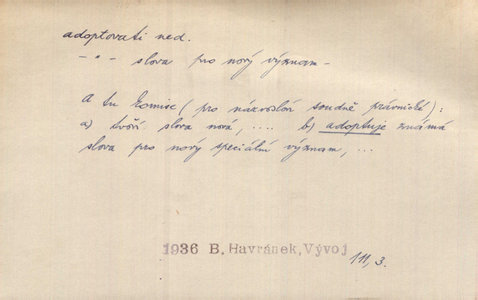 adoptovati ned.
— " — slova pro nový význam —
A tu komise (pro názvosloví soudně právnické):
a) tvoří slova nová, .... b) adoptuje známá
slova pro nový speciální význam, ...
1936 B. Havránek, Vývoj 111, 3.